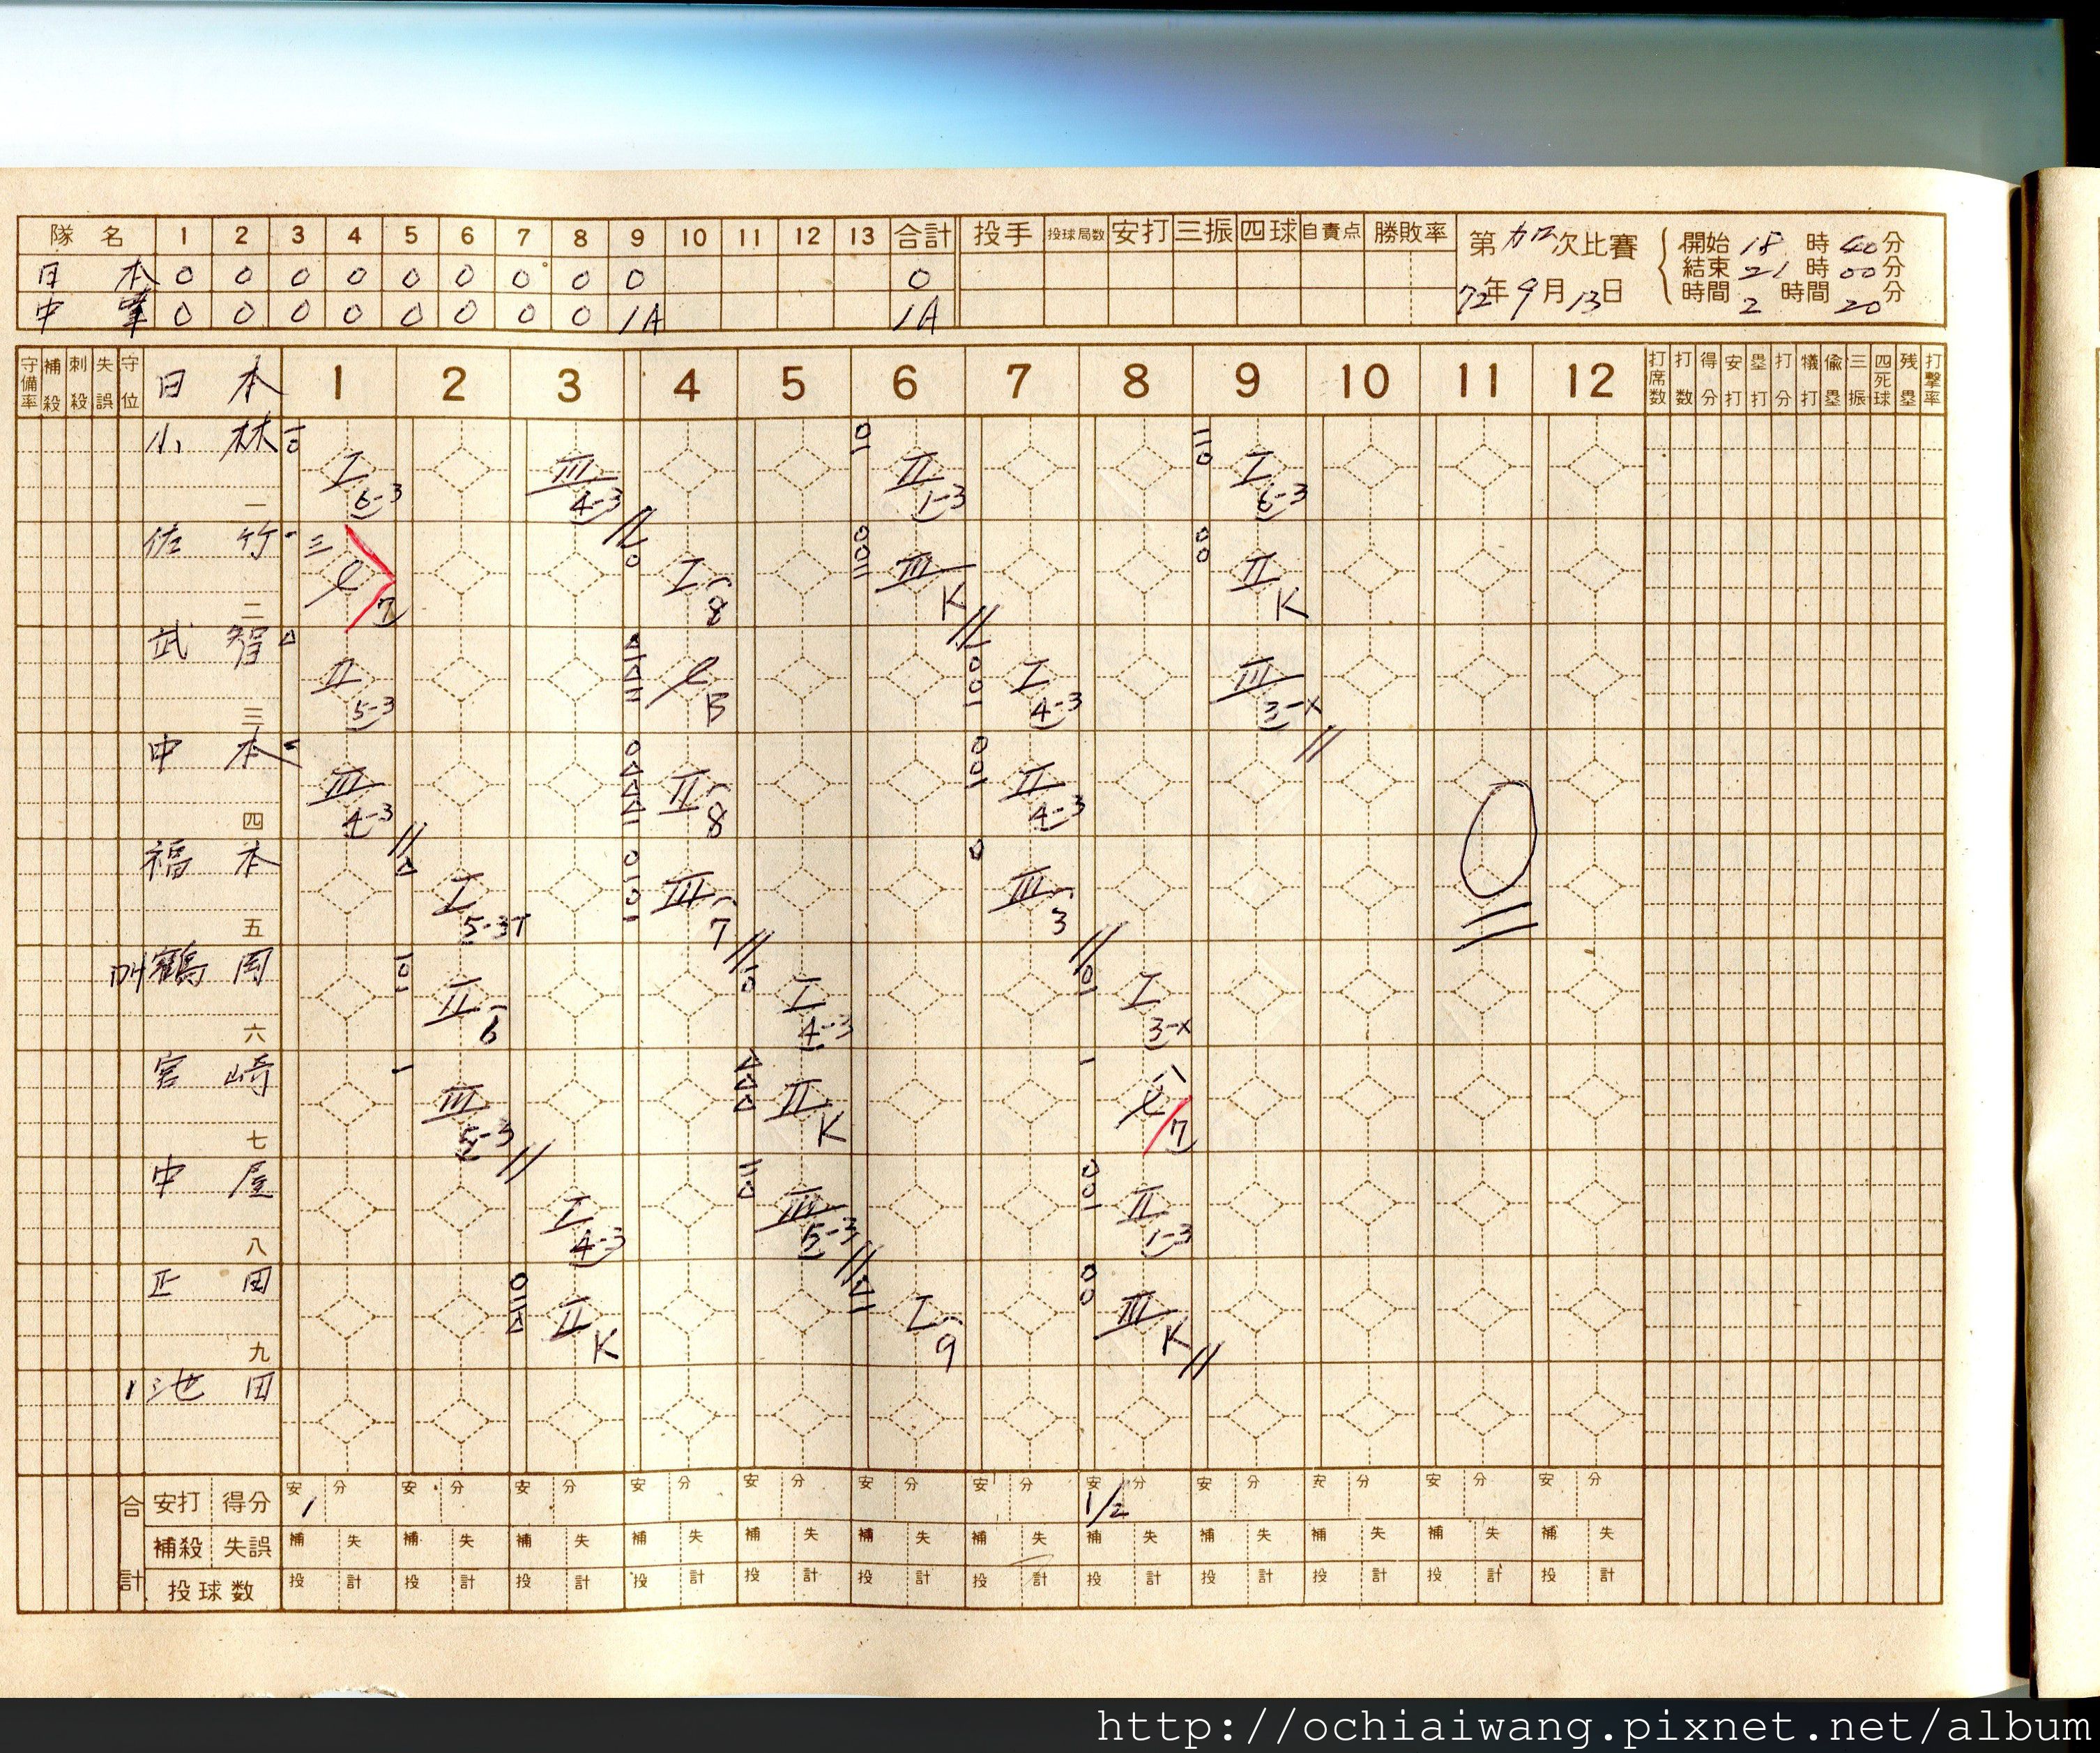 隊名 1 2 3 4 5 6 7 8 9 10 11 12 13 合計 投手 投球局数 安打 三振 四球 自責点 勝敗率
日本 0 0 0 0 0 0 0 0 0 0
中華 0 0 0 0 0 0 0 0 1A 1A
第加口次比賽
72年9月13日
開始 18時40分
結束 21時00分
時間 2時間20分
守備率 補殺 刺殺 失誤 守位 日本 1 2 3 4 5 6 7 8 9 10 11 12 打席数 打数 得分 安打 塁打 打分 犠打 偸塁 三振 四死球 残塁 打撃率
小林 一 I 6-3 III 4-3 II 1-3 I 6-3
佐竹 二 三 7 I 8 III K II K
武智 三 II 5-3 B I 4-3 III 3-X
中本 四 III 4-3 II 8 II 4-3
福本 五 I 5-3T III 7 III 3
鶴岡 六 II 6 I 4-3 I 3-X
宮崎 七 III 5-3 II K 7
中屋 八 I 4-3 III 5-3 II 1-3
正田 九 II K I 9 III K
1 池田
合計 安打 得分 安 1 分 安 分 安 分 安 分 安 分 安 分 安 分 安 1/2 分 安 分 安 分 安 分 安 分
補殺 失誤 補 失 補 失 補 失 補 失 補 失 補 失 補 失 補 失 補 失 補 失 補 失 補 失
投球数 投 計 投 計 投 計 投 計 投 計 投 計 投 計 投 計 投 計 投 計 投 計 投 計
http://ochiaiwang.pixnet.net/album